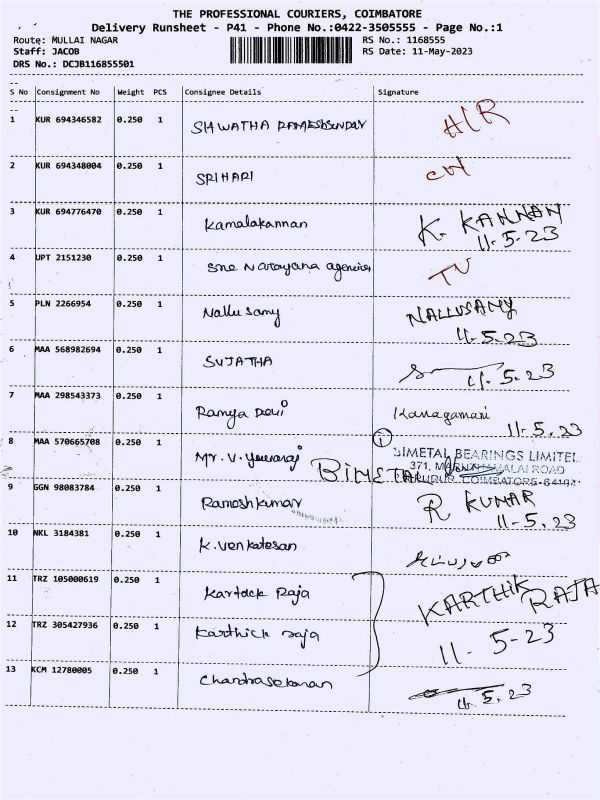 THE PROFESSIONAL COURIERS, COIMBATORE
Delivery Runsheet - P41 - Phone No.:0422-3505555 - Page No.:1
Route: MULLAI NAGAR RS No.: 1168555
Staff: JACOB RS Date: 11-May-2023
DRS No.: DCJB116855501
S No Consignment No Weight PCS Consignee Details Signature
1 KUR 694346582 0.250 1 H/R
2 KUR 694348004 0.250 1 SRIHARI
3 KUR 694776470 0.250 1 Kamalakannan K. KANNAN
11-5-23
4 UPT 2151230 0.250 1 Sree Narayana agencies
5 PLN 2266954 0.250 1 Nallusamy NALLUSAMY
11-5-23
6 MAA 568982694 0.250 1 SUJATHA
11-5-23
7 MAA 298543373 0.250 1 Ramya Devi Kanagamani
11-5-23
8 MAA 570665708 0.250 1 Mr. V. Yuvaraj BIMETAL
1
BIMETAL BEARINGS LIMITED
371, ROAD
9 GGN 98083784 0.250 1 Rameshkumar R KUMAR
11-5-23
10 NKL 3184381 0.250 1 K. Venkatesan
11 TRZ 105000619 0.250 1 Kartick Raja KARTHIK RAJA
12 TRZ 305427936 0.250 1 Karthick raja 11-5-23
13 KCM 12780005 0.250 1 Chandrasekaran
11.5.23